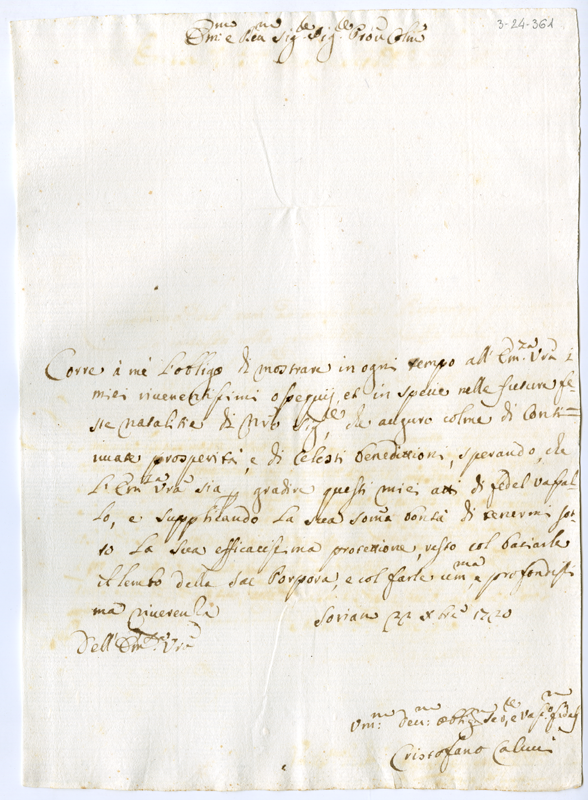 3-24-361
Em.mo e Rev.mo Sig.re Sig.re Pron Col.mo
Corre à me l'obligo di mostrare in ogni tempo all'Em.za Vr̄a i
miei riverentissimi ossequij, et in specie nelle future fe=
ste natalitie di Nr̄o Sig.re, che auguro colme di Conti=
nuate prosperità, e di Celesti benedittioni, sperando, che
L'Em.za Vr̄a sia gradire questi miei atti di fedel vassal=
lo, e supplicando La sua som̄a bontà di tenermi sot=
to La sua efficacissima protettione, resto col baciarle
il lembo della Sac Porpora, e col farle um.ma, e profondissi
ma riverenza
Sorian 22 Xbre 1720
Dell'Em.za Vr̄a
Um.mo Dev.mo Obb.mo Ser.re, e Vass.o fidel.mo
Cristofano